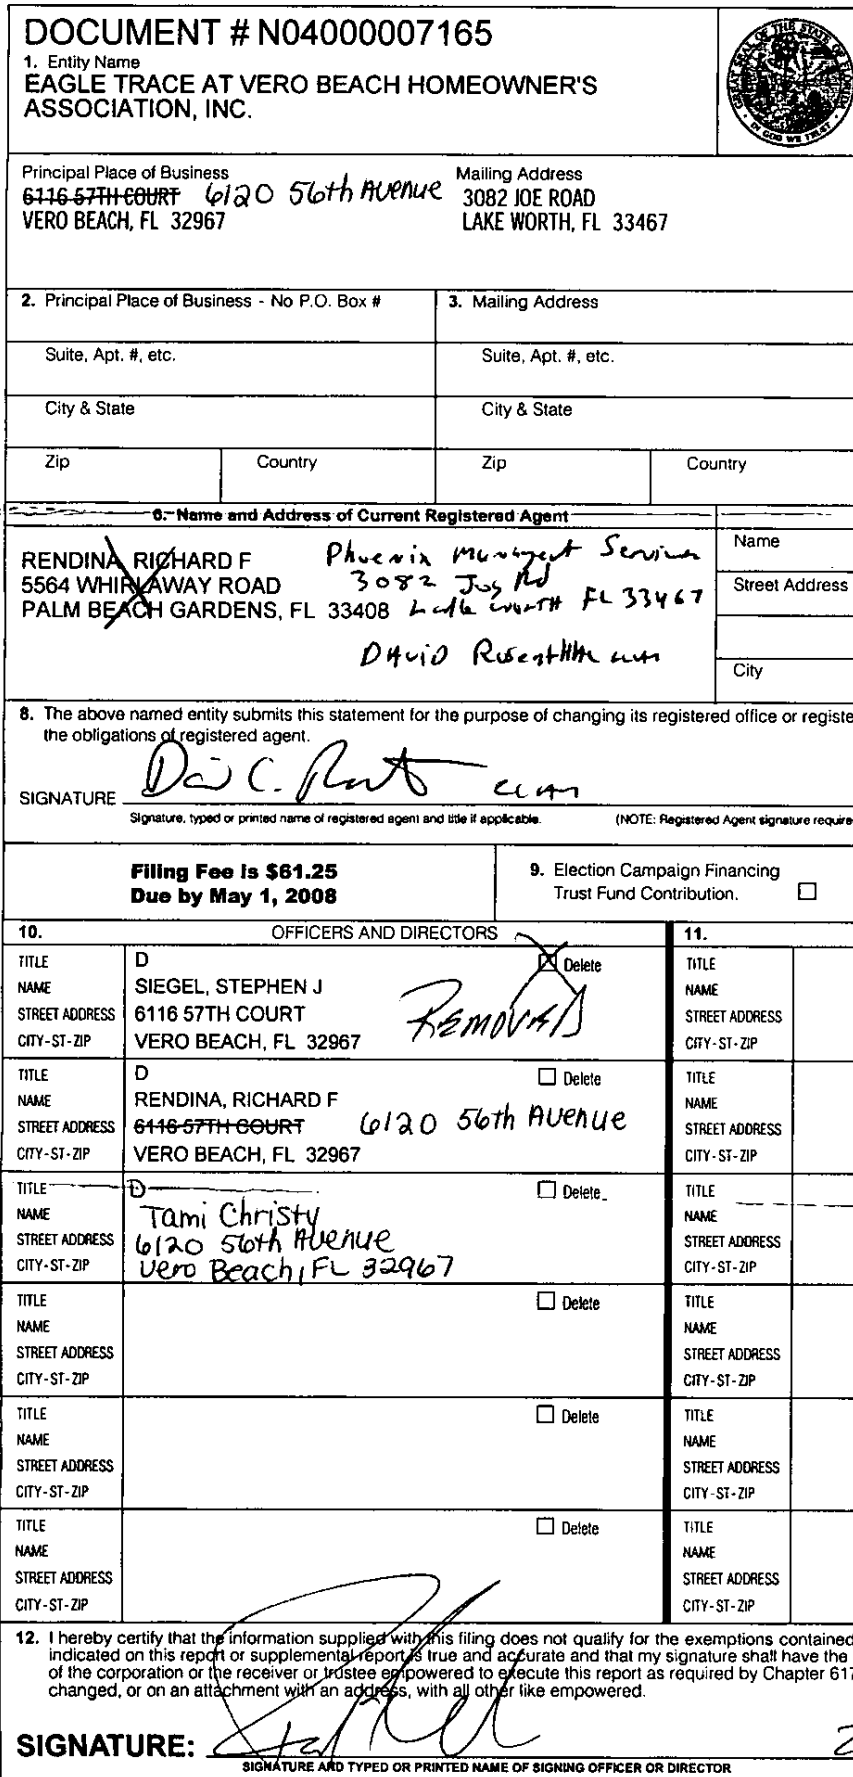 DOCUMENT # N04000007165
1. Entity Name
EAGLE TRACE AT VERO BEACH HOMEOWNER'S
ASSOCIATION, INC.
GREAT SEAL OF THE STATE OF FLORIDA
IN GOD WE TRUST
Principal Place of Business
6116 57TH COURT 6120 56th Avenue
VERO BEACH, FL 32967
Mailing Address
3082 JOE ROAD
LAKE WORTH, FL 33467
2. Principal Place of Business - No P.O. Box #
3. Mailing Address
Suite, Apt. #, etc.
Suite, Apt. #, etc.
City & State
City & State
Zip Country
Zip Country
6. Name and Address of Current Registered Agent
RENDINA, RICHARD F
5564 WHIRLAWAY ROAD
PALM BEACH GARDENS, FL 33408
Phoenix
3082 Jog Rd
FL 33467
David
Name
Street Address
City
8. The above named entity submits this statement for the purpose of changing its registered office or registe
the obligations of registered agent.
SIGNATURE
Signature, typed or printed name of registered agent and title if applicable. (NOTE: Registered Agent signature require
Filing Fee is $61.25
Due by May 1, 2008
9. Election Campaign Financing
Trust Fund Contribution.
10. OFFICERS AND DIRECTORS
11.
TITLE D Delete
NAME SIEGEL, STEPHEN J
STREET ADDRESS 6116 57TH COURT
CITY-ST-ZIP VERO BEACH, FL 32967
REMOVED
TITLE
NAME
STREET ADDRESS
CITY-ST-ZIP
TITLE D Delete
NAME RENDINA, RICHARD F
STREET ADDRESS 6116 57TH COURT 6120 56th Avenue
CITY-ST-ZIP VERO BEACH, FL 32967
TITLE
NAME
STREET ADDRESS
CITY-ST-ZIP
TITLE D Delete
NAME Tami Christy
STREET ADDRESS 6120 56th Avenue
CITY-ST-ZIP Vero Beach, FL 32967
TITLE
NAME
STREET ADDRESS
CITY-ST-ZIP
TITLE Delete
NAME
STREET ADDRESS
CITY-ST-ZIP
TITLE
NAME
STREET ADDRESS
CITY-ST-ZIP
TITLE Delete
NAME
STREET ADDRESS
CITY-ST-ZIP
TITLE
NAME
STREET ADDRESS
CITY-ST-ZIP
TITLE Delete
NAME
STREET ADDRESS
CITY-ST-ZIP
TITLE
NAME
STREET ADDRESS
CITY-ST-ZIP
12. I hereby certify that the information supplied with this filing does not qualify for the exemptions contained
indicated on this report or supplemental report is true and accurate and that my signature shall have the
of the corporation or the receiver or trustee empowered to execute this report as required by Chapter 617
changed, or on an attachment with an address, with all other like empowered.
SIGNATURE:
SIGNATURE AND TYPED OR PRINTED NAME OF SIGNING OFFICER OR DIRECTOR